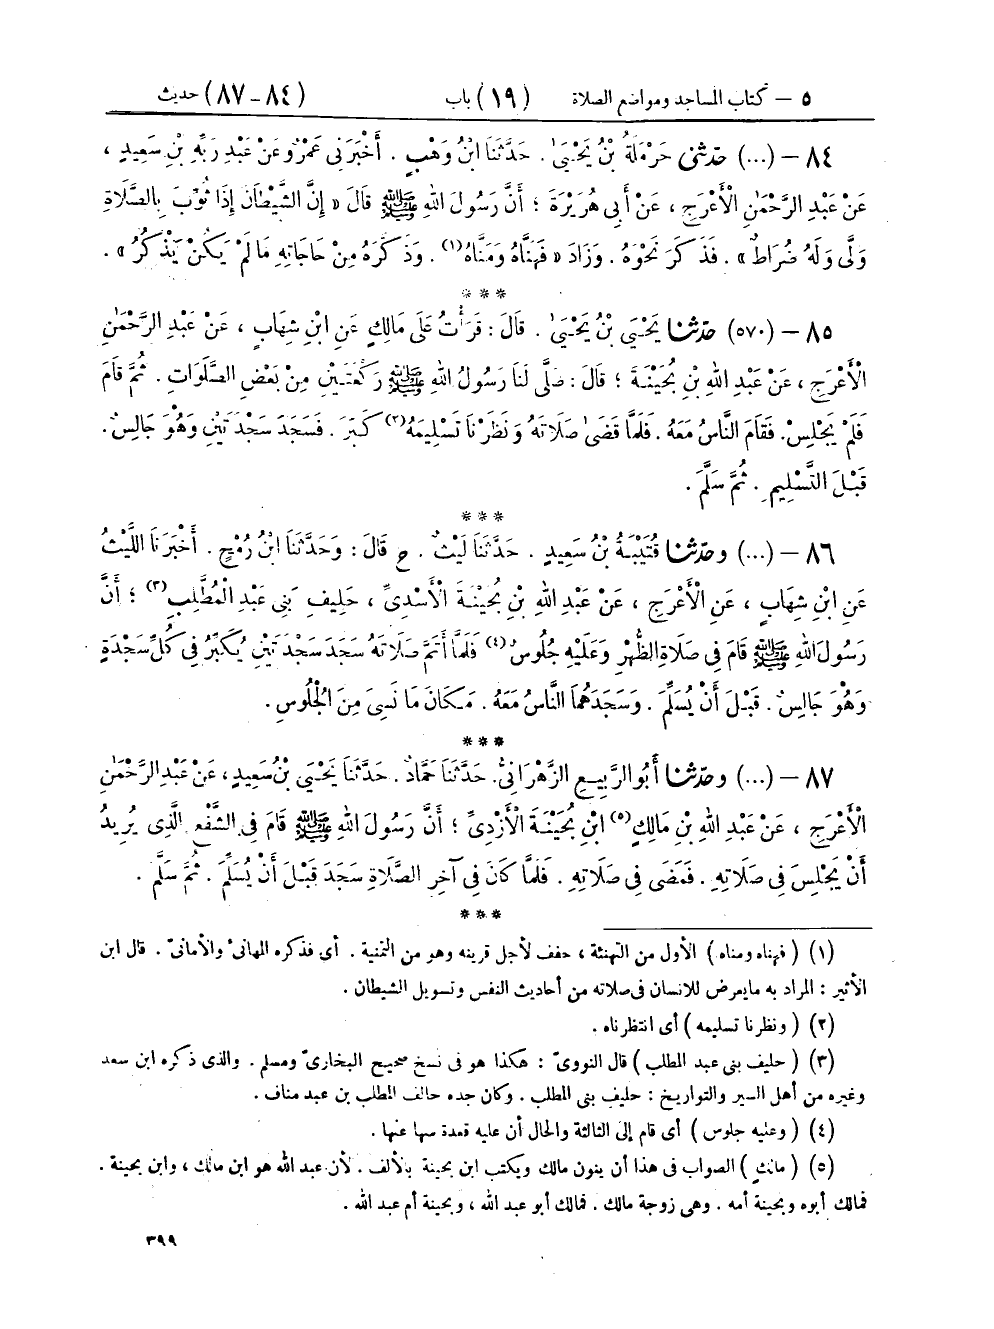 ٥ – كتاب المساجد ومواضع الصلاة (١٩) باب (٨٤-٨٧) حديث
٨٤ – (...) حَدَّثَنِي حَرْمَلَةُ بْنُ يَحْيَىٰ . حَدَّثَنَا ابْنُ وَهْبٍ . أَخْبَرَنِي عَمْرٌو عَنْ عَبْدِ رَبِّهِ بْنِ سَعِيدٍ ،
عَنْ عَبْدِ الرَّحْمٰنِ الْأَعْرَجِ ، عَنْ أَبِي هُرَيْرَةَ ؛ أَنَّ رَسُولَ اللهِ ﷺ قَالَ « إِنَّ الشَّيْطَانَ إِذَا ثُوِّبَ بِالصَّلَاةِ
وَلَّى وَلَهُ ضُرَاطٌ » . فَذَكَرَ نَحْوَهُ . وَزَادَ « فَهَنَّاهُ وَمَنَّاهُ(١) . وَذَكَّرَهُ مِنْ حَاجَاتِهِ مَا لَمْ يَكُنْ يَذْكُرُ » .
***
٨٥ – (٥٧٠) حَدَّثَنَا يَحْيَى بْنُ يَحْيَىٰ . قَالَ : قَرَأْتُ عَلَى مَالِكٍ عَنِ ابْنِ شِهَابٍ ، عَنْ عَبْدِ الرَّحْمٰنِ
الْأَعْرَجِ ، عَنْ عَبْدِ اللهِ بْنِ بُحَيْنَةَ ؛ قَالَ : صَلَّى لَنَا رَسُولُ اللهِ ﷺ رَكْعَتَيْنِ مِنْ بَعْضِ الصَّلَوَاتِ . ثُمَّ قَامَ
فَلَمْ يَجْلِسْ . فَقَامَ النَّاسُ مَعَهُ . فَلَمَّا قَضَىٰ صَلَاتَهُ وَنَظَرْنَا تَسْلِيمَهُ(٢) كَبَّرَ . فَسَجَدَ سَجْدَتَيْنِ وَهُوَ جَالِسٌ .
قَبْلَ التَّسْلِيمِ . ثُمَّ سَلَّمَ .
***
٨٦ – (...) وحَدَّثَنَا قُتَيْبَةُ بْنُ سَعِيدٍ . حَدَّثَنَا لَيْثٌ . ح قَالَ : وَحَدَّثَنَا ابْنُ رُمْحٍ . أَخْبَرَنَا اللَّيْثُ
عَنِ ابْنِ شِهَابٍ ، عَنِ الْأَعْرَجِ ، عَنْ عَبْدِ اللهِ بْنِ بُحَيْنَةَ الْأَسْدِيِّ ، حَلِيفِ بَنِي عَبْدِ الْمُطَّلِبِ(٣) ؛ أَنَّ
رَسُولَ اللهِ ﷺ قَامَ فِي صَلَاةِ الظُّهْرِ وَعَلَيْهِ جُلُوسٌ(٤) فَلَمَّا أَتَمَّ صَلَاتَهُ سَجَدَ سَجْدَتَيْنِ يُكَبِّرُ فِي كُلِّ سَجْدَةٍ
وَهُوَ جَالِسٌ . قَبْلَ أَنْ يُسَلِّمَ . وَسَجَدَهُمَا النَّاسُ مَعَهُ . مَكَانَ مَا نَسِيَ مِنَ الْجُلُوسِ .
***
٨٧ – (...) وحَدَّثَنَا أَبُو الرَّبِيعِ الزَّهْرَانِيُّ . حَدَّثَنَا حَمَّادٌ . حَدَّثَنَا يَحْيَى بْنُ سَعِيدٍ ، عَنْ عَبْدِ الرَّحْمٰنِ
الْأَعْرَجِ ، عَنْ عَبْدِ اللهِ بْنِ مَالِكٍ(٥) ابْنِ بُحَيْنَةَ الْأَزْدِيِّ ؛ أَنَّ رَسُولَ اللهِ ﷺ قَامَ فِي الشَّفْعِ الَّذِي يُرِيدُ
أَنْ يَجْلِسَ فِي صَلَاتِهِ . فَمَضَى فِي صَلَاتِهِ . فَلَمَّا كَانَ فِي آخِرِ الصَّلَاةِ سَجَدَ قَبْلَ أَنْ يُسَلِّمَ . ثُمَّ سَلَّمَ .
***
(١) ( فهناه ومناه ) الأول من التهنئة ، خفف لأجل قرينه وهو من التمنية . أى فذكره المهانىّ والأمانىّ . قال ابن
الأثير : المراد به ما يعرض للانسان فى صلاته من أحاديث النفس وتسويل الشيطان .
(٢) ( ونظرنا تسليمه ) أى انتظرناه .
(٣) ( حليف بنى عبد المطلب ) قال النووىّ : هكذا هو فى نسخ صحيح البخارىّ ومسلم . والذى ذكره ابن سعد
وغيره من أهل السير والتواريخ : حليف بنى المطلب . وكان جده حالف المطلب بن عبد مناف .
(٤) ( وعليه جلوس ) أى قام إلى الثالثة والحال أن عليه قعدة سها عنها .
(٥) ( مالك ) الصواب فى هذا أن ينون مالك ويكتب ابن بحينة بالألف . لأن عبد الله هو ابن مالك ، وابن بحينة .
فمالك أبوه وبحينة أمه . وهى زوجة مالك . فمالك أبو عبد الله ، وبحينة أم عبد الله .
٣٩٩